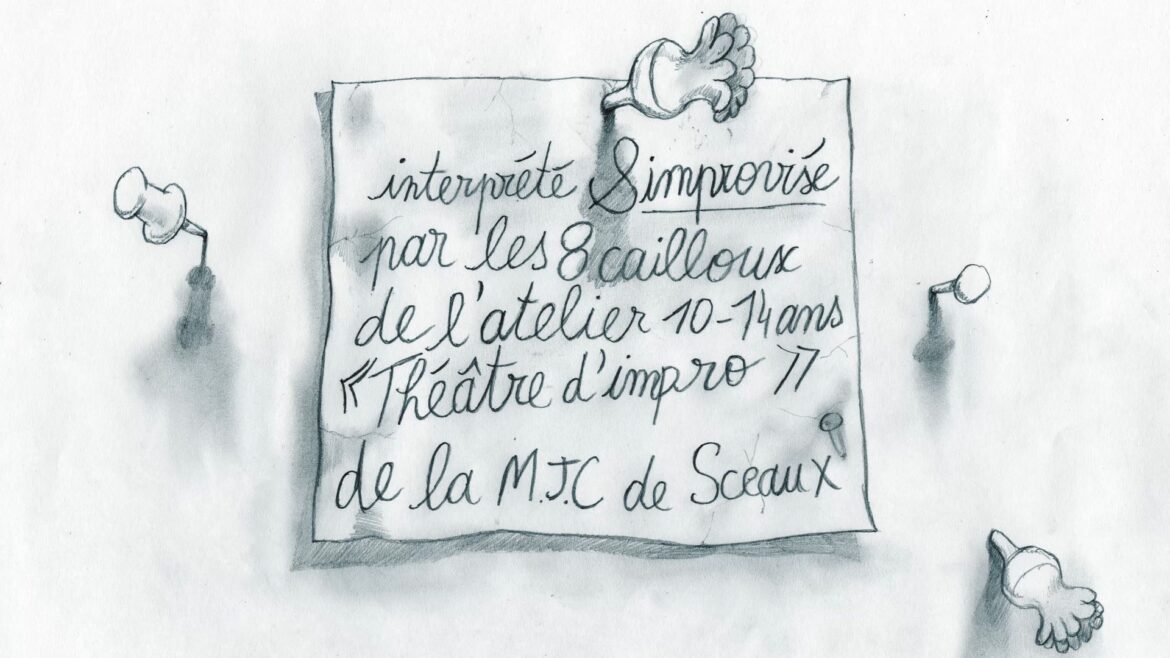 interprété & improvisé
par les 8 cailloux
de l'atelier 10-14 ans
« Théâtre d'impro »
de la M.J.C de Sceaux